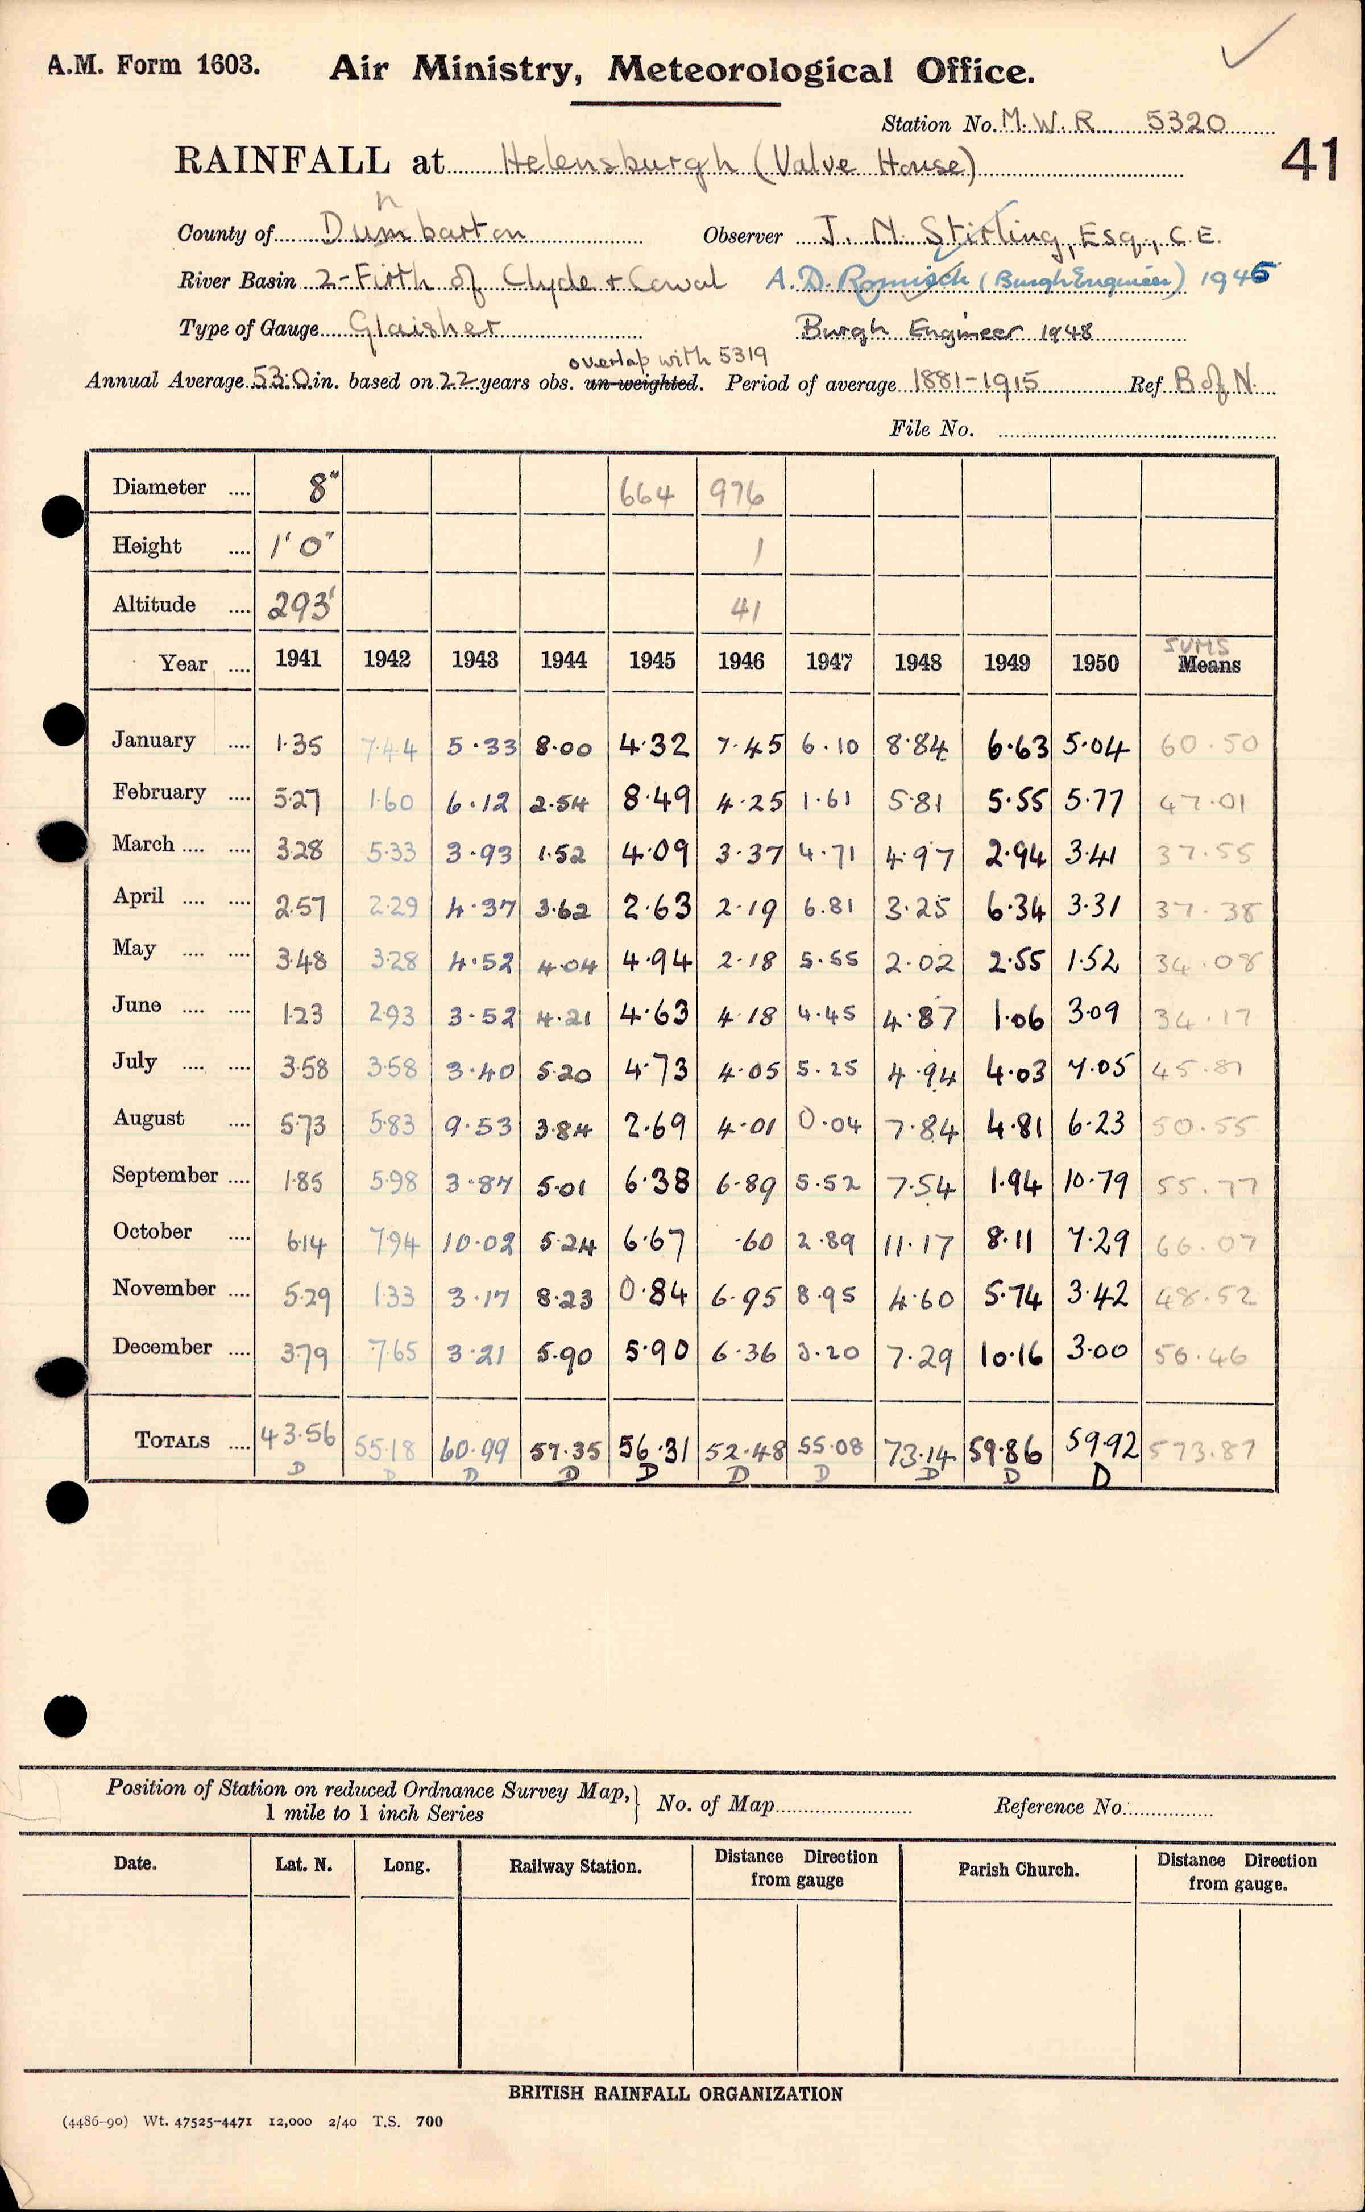 A.M. Form 1603. Air Ministry, Meteorological Office.
Station No. M.W.R 5320
RAINFALL at Helensburgh (Valve House) 41
n
County of Dumbarton Observer J. N. Stirling, Esq., C.E.
River Basin 2-Firth of Clyde + Cowal A. D. (Burgh Engineer) 1945
Type of Gauge Glaisher Burgh Engineer 1948
overlap with 5319
Annual Average 53.0 in. based on 22 years obs. un-weighted. Period of average 1881-1915 Ref B of N.
File No.
Diameter .... 8" 664 976
Height .... 1' 0" 1
Altitude .... 293' 41
SUMS
Year .... 1941 1942 1943 1944 1945 1946 1947 1948 1949 1950 Means
January .... 1.35 7.44 5.33 8.00 4.32 7.45 6.10 8.84 6.63 5.04 60.50
February .... 5.27 1.60 6.12 2.54 8.49 4.25 1.61 5.81 5.55 5.77 47.01
March .... .... 3.28 5.33 3.93 1.52 4.09 3.37 4.71 4.97 2.94 3.41 37.55
April .... .... 2.57 2.29 4.37 3.62 2.63 2.19 6.81 3.25 6.34 3.31 37.38
May .... .... 3.48 3.28 4.52 4.04 4.94 2.18 5.55 2.02 2.55 1.52 34.08
June .... .... 1.23 2.93 3.52 4.21 4.63 4.18 4.45 4.87 1.06 3.09 34.17
July .... .... 3.58 3.58 3.40 5.20 4.73 4.05 5.25 4.94 4.03 7.05 45.81
August .... 5.73 5.83 9.53 3.84 2.69 4.01 0.04 7.84 4.81 6.23 50.55
September .... 1.85 5.98 3.87 5.01 6.38 6.89 5.52 7.54 1.94 10.79 55.77
October .... 6.14 7.94 10.02 5.24 6.67 .60 2.89 11.17 8.11 7.29 66.07
November .... 5.29 1.33 3.17 8.23 0.84 6.95 8.95 4.60 5.74 3.42 48.52
December .... 3.79 7.65 3.21 5.90 5.90 6.36 3.20 7.29 10.16 3.00 56.46
TOTALS .... 43.56 55.18 60.99 57.35 56.31 52.48 55.08 73.14 59.86 59.92 573.87
D D D D D D D D D D
Position of Station on reduced Ordnance Survey Map, } No. of Map Reference No.
1 mile to 1 inch Series
Date. Lat. N. Long. Railway Station. Distance Direction from gauge Parish Church. Distance Direction from gauge.
BRITISH RAINFALL ORGANIZATION
(4486-90) Wt. 47525-4471 12,000 2/40 T.S. 700